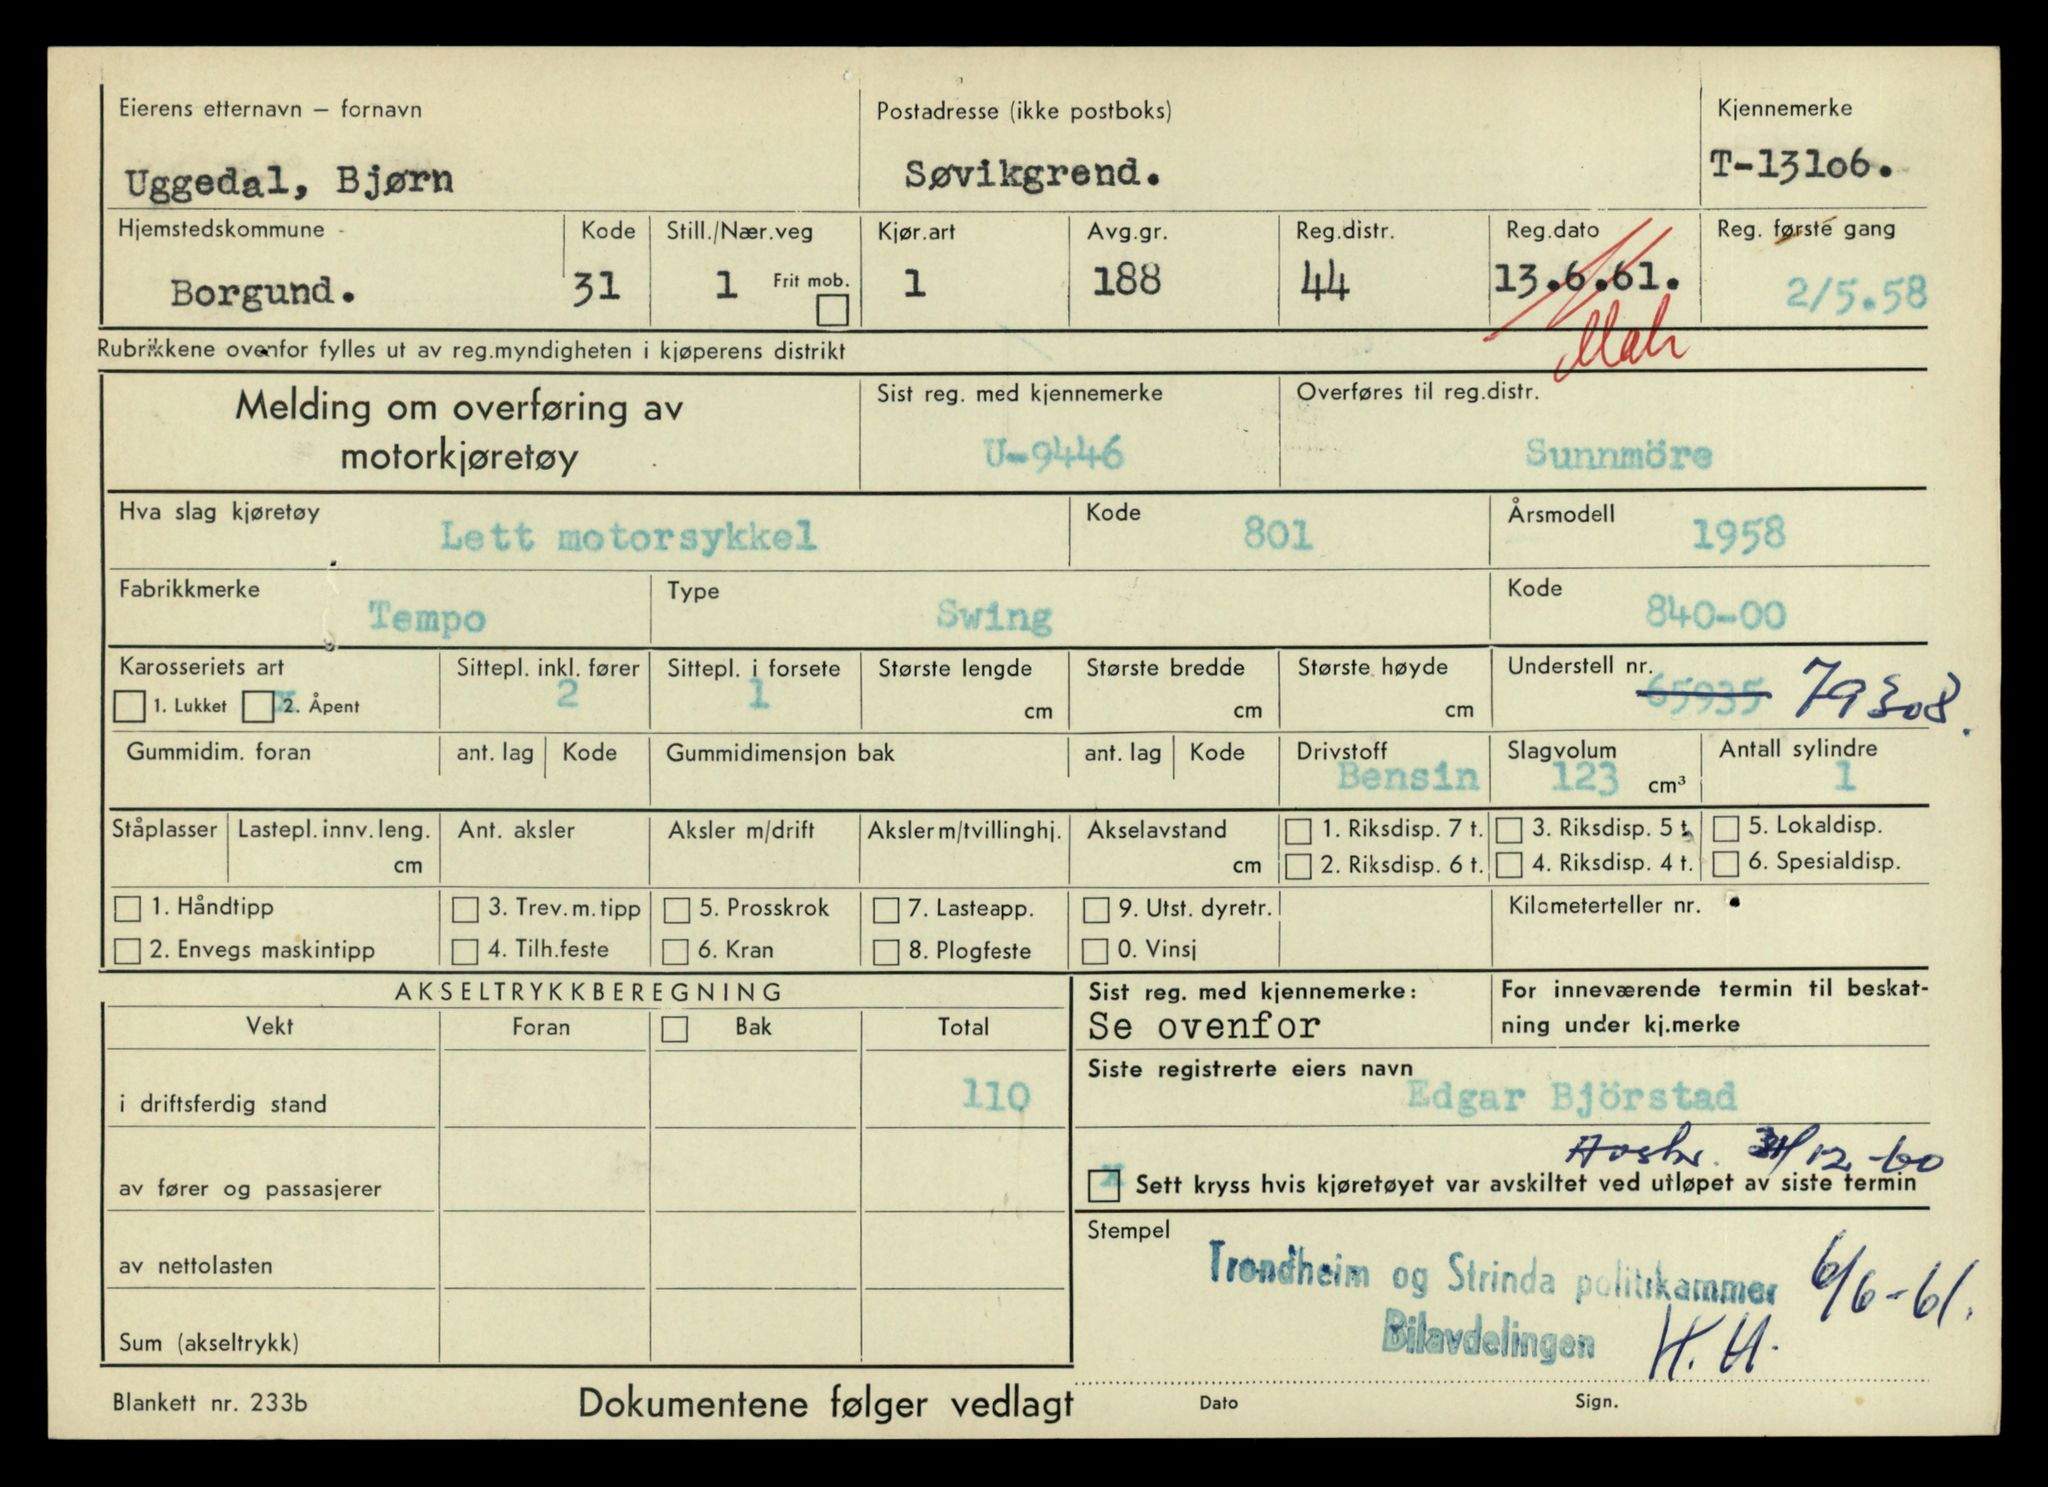 Eierens etternavn – fornavn
Uggedal, Bjørn
Postadresse (ikke postboks)
Søvikgrend.
Kjennemerke
T-13106.
Hjemstedskommune
Borgund.
Kode
31
Still./Nær.veg
1
Frit mob.
Kjør.art
1
Avg.gr.
188
Reg.distr.
44
Reg.dato
13.6.61.
Reg. første gang
2/5.58
Rubrikkene ovenfor fylles ut av reg.myndigheten i kjøperens distrikt
Melding om overføring av
motorkjøretøy
Sist reg. med kjennemerke
U-9446
Overføres til reg.distr.
Sunnmöre
Hva slag kjøretøy
Lett motorsykkel
Kode
801
Årsmodell
1958
Fabrikkmerke
Tempo
Type
Swing
Kode
840-00
Karosseriets art
1. Lukket
x 2. Åpent
Sittepl. inkl. fører
2
Sittepl. i forsete
1
Største lengde
cm
Største bredde
cm
Største høyde
cm
Understell nr.
65935 79308.
Gummidim. foran
ant. lag
Kode
Gummidimensjon bak
ant. lag
Kode
Drivstoff
Bensin
Slagvolum
123 cm³
Antall sylindre
1
Ståplasser
Lastepl. innv. leng.
cm
Ant. aksler
Aksler m/drift
Aksler m/tvillinghj.
Akselavstand
cm
1. Riksdisp. 7 t.
2. Riksdisp. 6 t.
3. Riksdisp. 5 t.
4. Riksdisp. 4 t.
5. Lokaldisp.
6. Spesialdisp.
1. Håndtipp
2. Envegs maskintipp
3. Trev. m. tipp
4. Tilh.feste
5. Prosskrok
6. Kran
7. Lasteapp.
8. Plogfeste
9. Utst. dyretr.
0. Vinsj
Kilometerteller nr.
AKSELTRYKKBEREGNING
Vekt
Foran
Bak
Total
i driftsferdig stand
110
av fører og passasjerer
av nettolasten
Sum (akseltrykk)
Sist reg. med kjennemerke:
Se ovenfor
For inneværende termin til beskat-
ning under kj.merke
Siste registrerte eiers navn
Edgar Björstad
31/12-60
x Sett kryss hvis kjøretøyet var avskiltet ved utløpet av siste termin
Stempel
Trondheim og Strinda politikammer
Bilavdelingen
6/6-61.
H.H.
Dato
Sign.
Blankett nr. 233b
Dokumentene følger vedlagt